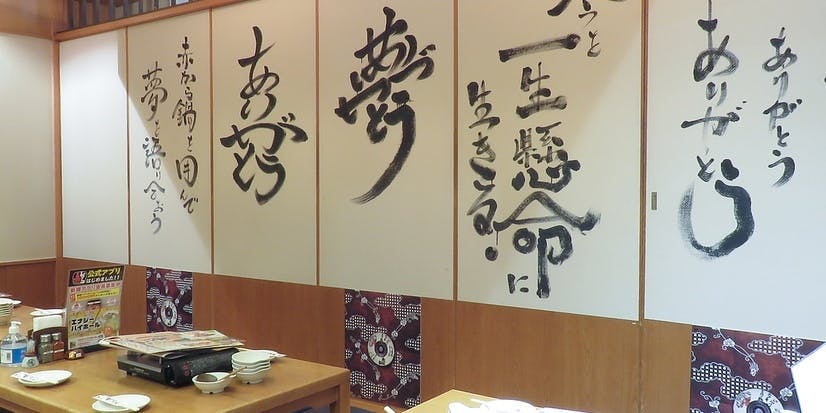 ありがとう
ありがとう
っと
一生懸命に
生きる!
ありがとう
赤から鍋を囲んで
夢を語り合おう
公式アプリ
はじめました!!
エナジー
ハイボール